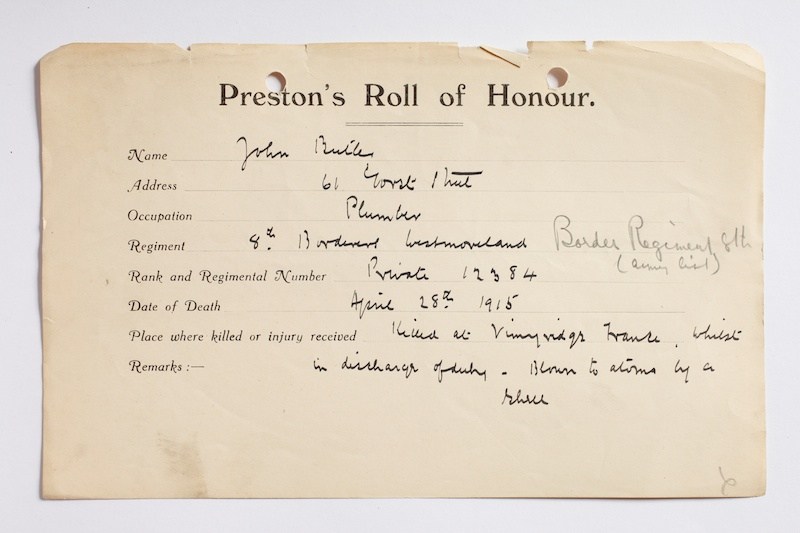 Preston's Roll of Honour.
Name John Butler
Address 61 Gorst Street
Occupation Plumber
Regiment 8th Borderers Westmoreland Border Regiment 8th
(army list)
Rank and Regimental Number Private 12384
Date of Death April 28th 1915
Place where killed or injury received Killed at Vimyridge France, whilst
Remarks:— in discharge of duty - Blown to atoms by a
shell